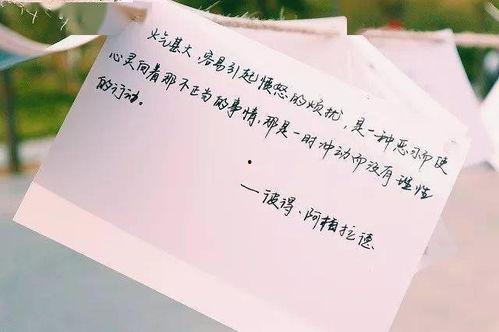 火气甚大,容易引起愤怒的烦扰,是一种恶习而使
心灵向着那不正当的事情,那是一时冲动而没有理性
的行动。
——彼得、阿柏拉德